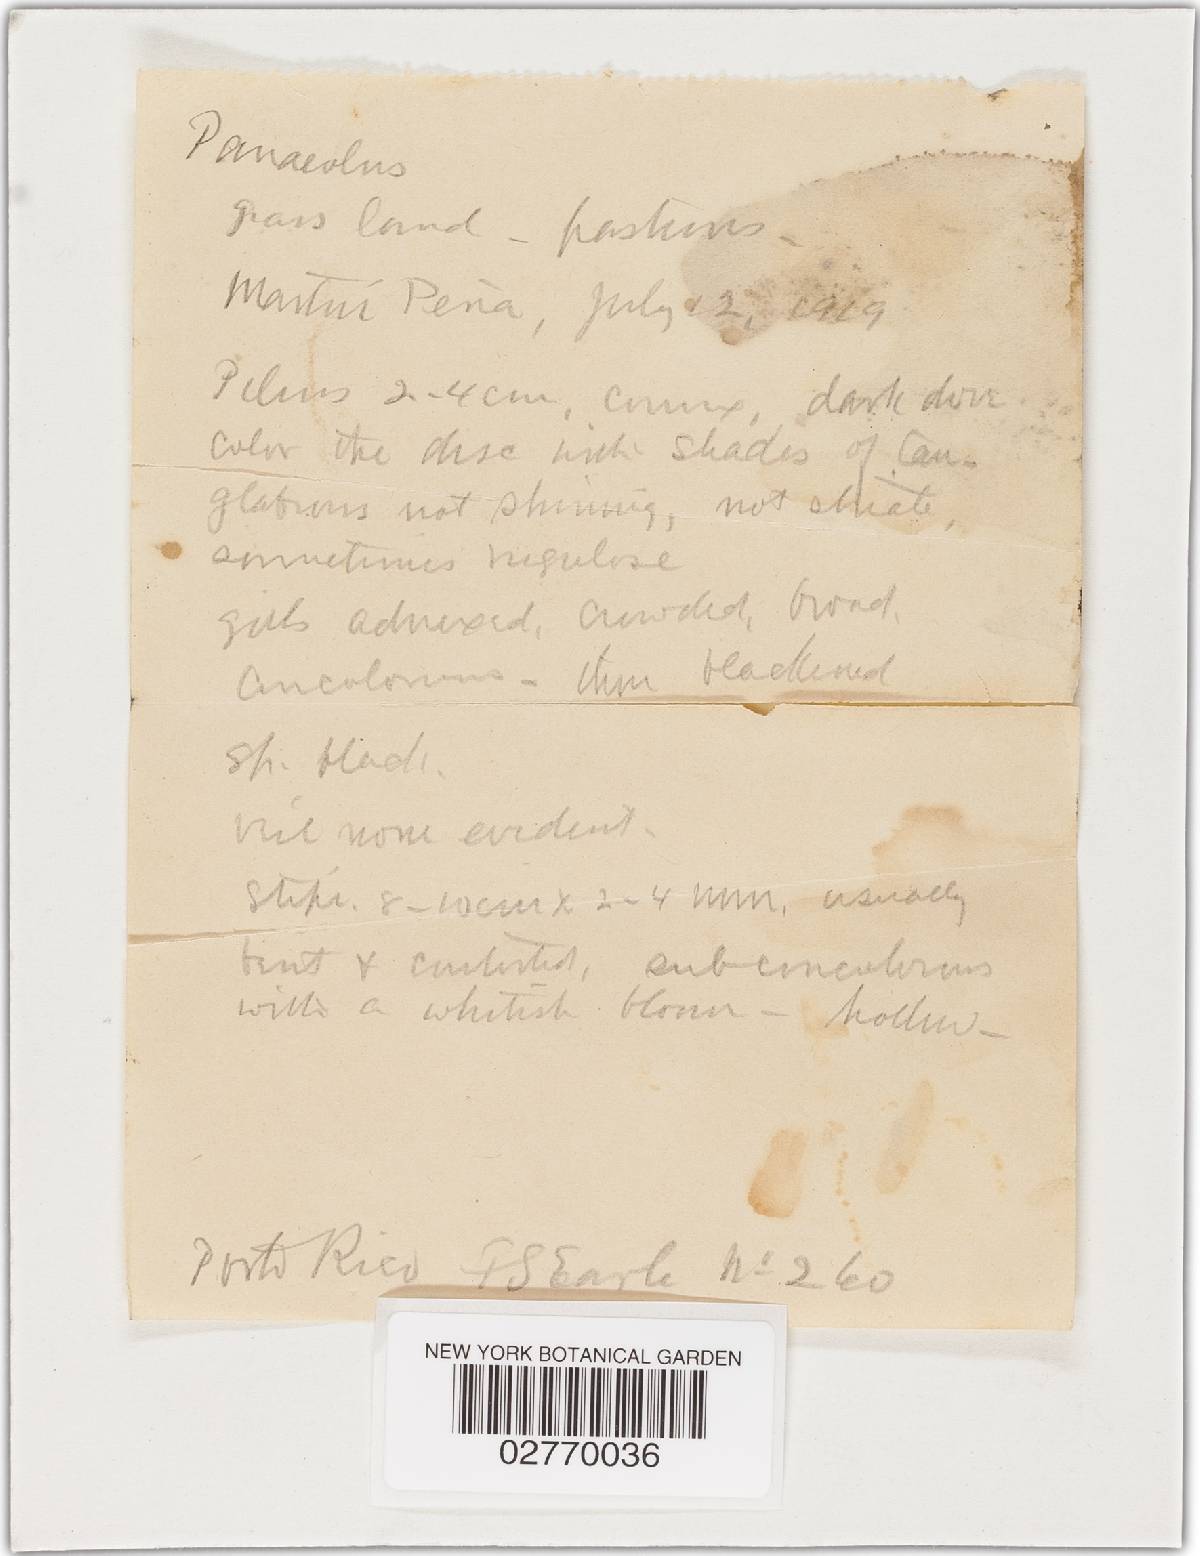 Panaeolus
grass land - pastures -
Martin Peña, July 12, 1919
Pileus 2-4 cm, convex, dark dove
color the disc with shades of tan -
glabrous not shining, not striate,
sometimes rugulose
gills adnexed, crowded, broad,
concolorous - then blackened
Sp. black.
Veil none evident.
Stipe. 8-10 cm x 2-4 mm, usually
bent & contorted, sub-concolorous
with a whitish bloom - hollow -
Porto Rico FS Earle No 260
NEW YORK BOTANICAL GARDEN
02770036